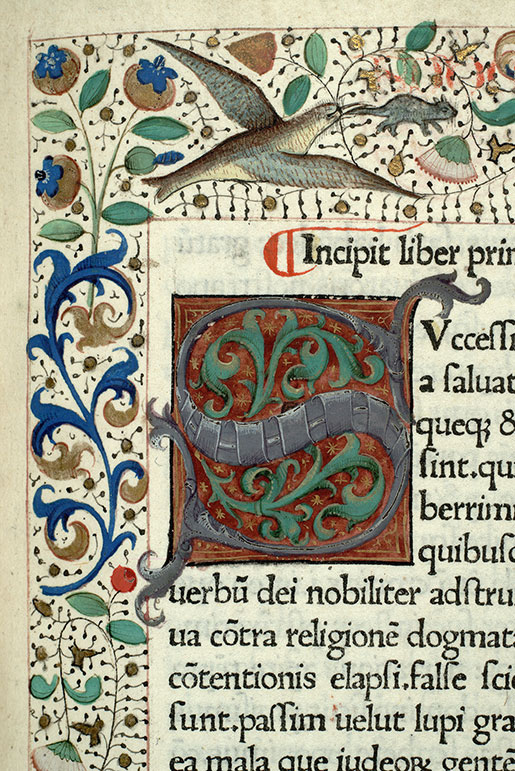 ¶ Incipit liber prim
SVccessi
a saluat
queqꝫ &
sint.qui
berrim
quibusc
uerbū dei nobiliter adstru
ua cōtra religionē dogmata
cōtentionis elapsi.false sci
sunt.passim uelut lupi gra
ea mala que iudeoꝝ gentē